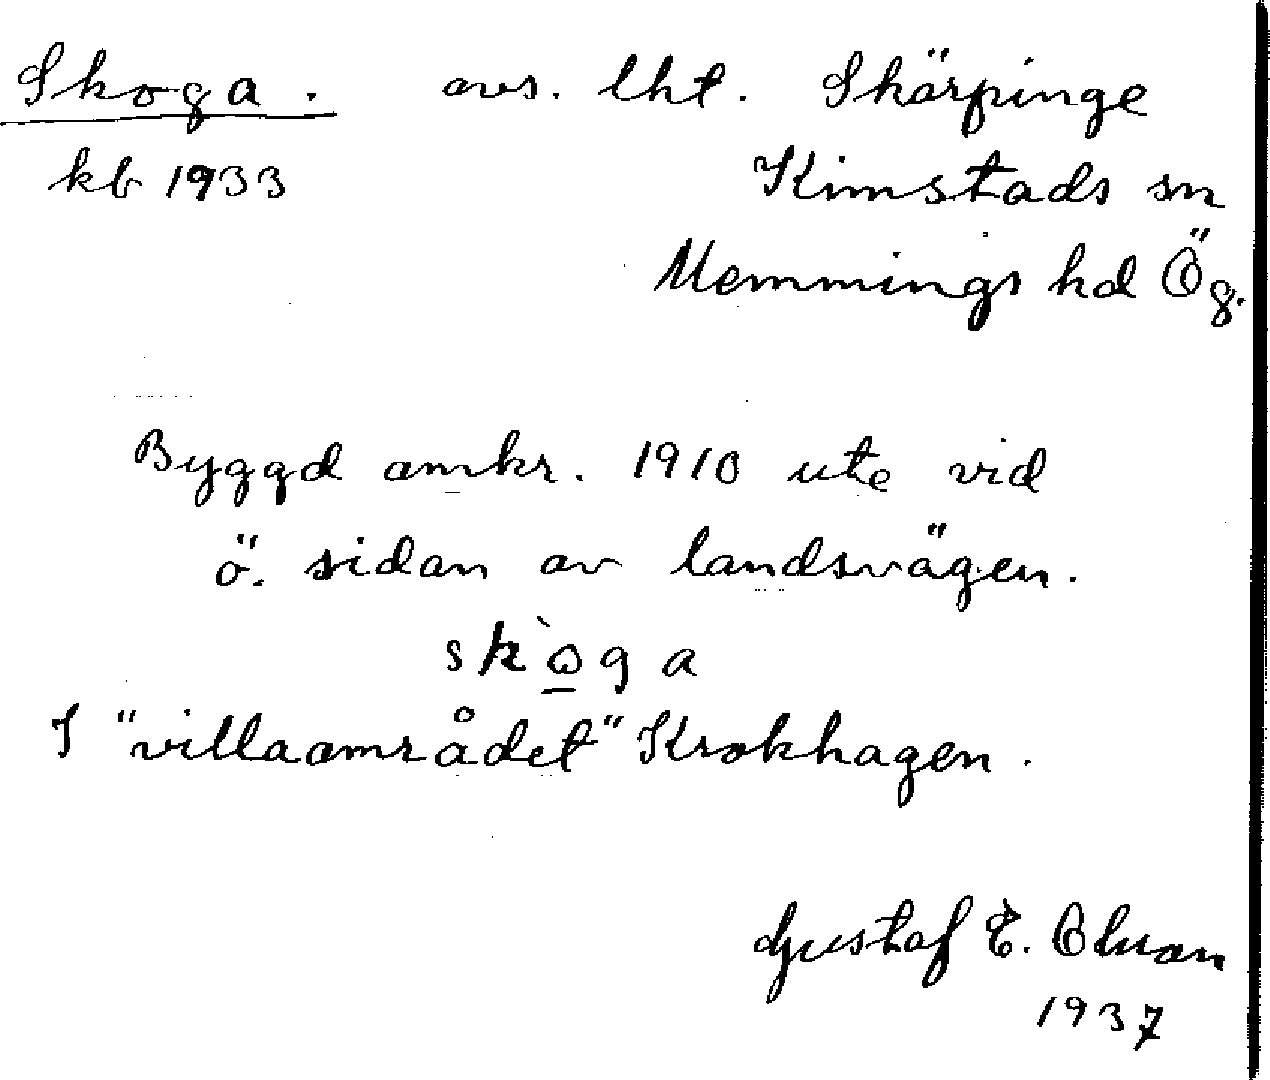 Skoga. avs. lht. Skärpinge
kb 1933 Kimstads sn
Memmings hd Ög.
Byggd omkr. 1910 ute vid
ö. sidan av landsvägen.
sk`o̲ga
I "villaområdet" Krokhagen.
Gustaf E. Olsson
1937